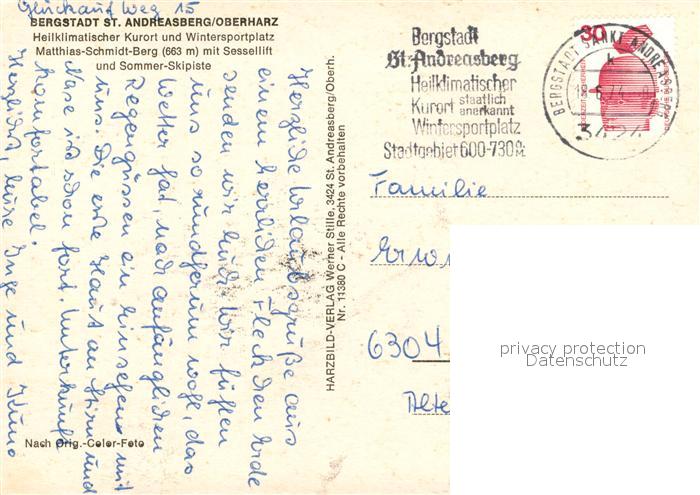 Glückauf Weg 15
BERGSTADT ST. ANDREASBERG/OBERHARZ
Heilklimatischer Kurort und Wintersportplatz
Matthias-Schmidt-Berg (663 m) mit Sessellift
und Sommer-Skipiste
Herzliche Urlaubsgrüße aus
einem herrlichen Fleckchen Erde
senden wir Euch. Wir fühlen
uns so rundherum wohl, das
Wetter hat, nach anfänglichen
Regengüssen ein Einsehen mit
uns. Die erste Haut an Stirn und
Nase ist schon fort. Unterkunft
komfortabel.
Herzlichst, Eure Inge und Kuno
Nach Orig.-Color-Foto
HARZBILD-VERLAG Werner Stille, 3424 St. Andreasberg/Oberh.
Nr. 11380 C - Alle Rechte vorbehalten
Bergstadt
St. Andreasberg
Heilklimatischer
Kurort staatlich anerkannt
Wintersportplatz
Stadtgebiet 600-730m
30
BERGSTADT SANKT ANDREASBERG
k
3424
Familie
Erwi
6304
privacy protection
Datenschutz